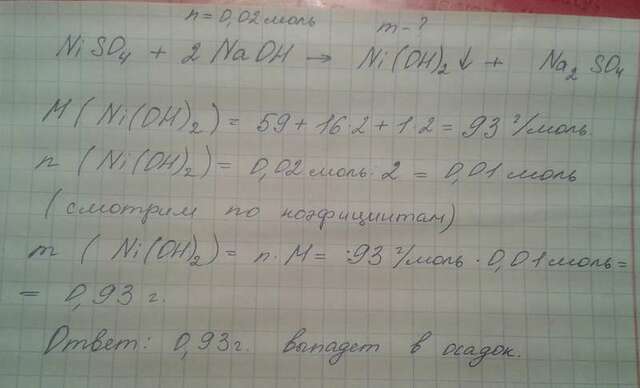 n=0,02 моль m-?
NiSO₄ + 2 NaOH → Ni(OH)₂↓ + Na₂SO₄
M(Ni(OH)₂) = 59+16·2+1·2 = 93 г/моль.
n (Ni(OH)₂) = 0,02 моль : 2 = 0,01 моль
(смотрим по коэфициштам)
m (Ni(OH)₂) = n·M = :93 г/моль · 0,01 моль =
= 0,93 г.
Ответ: 0,93г. выпадет в осадок.